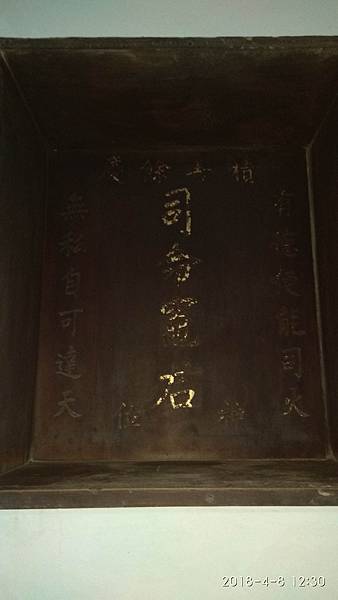 積善餘慶
有德便能司火
司命竈君
神位
無私自可達天
2018-4-8 12:30